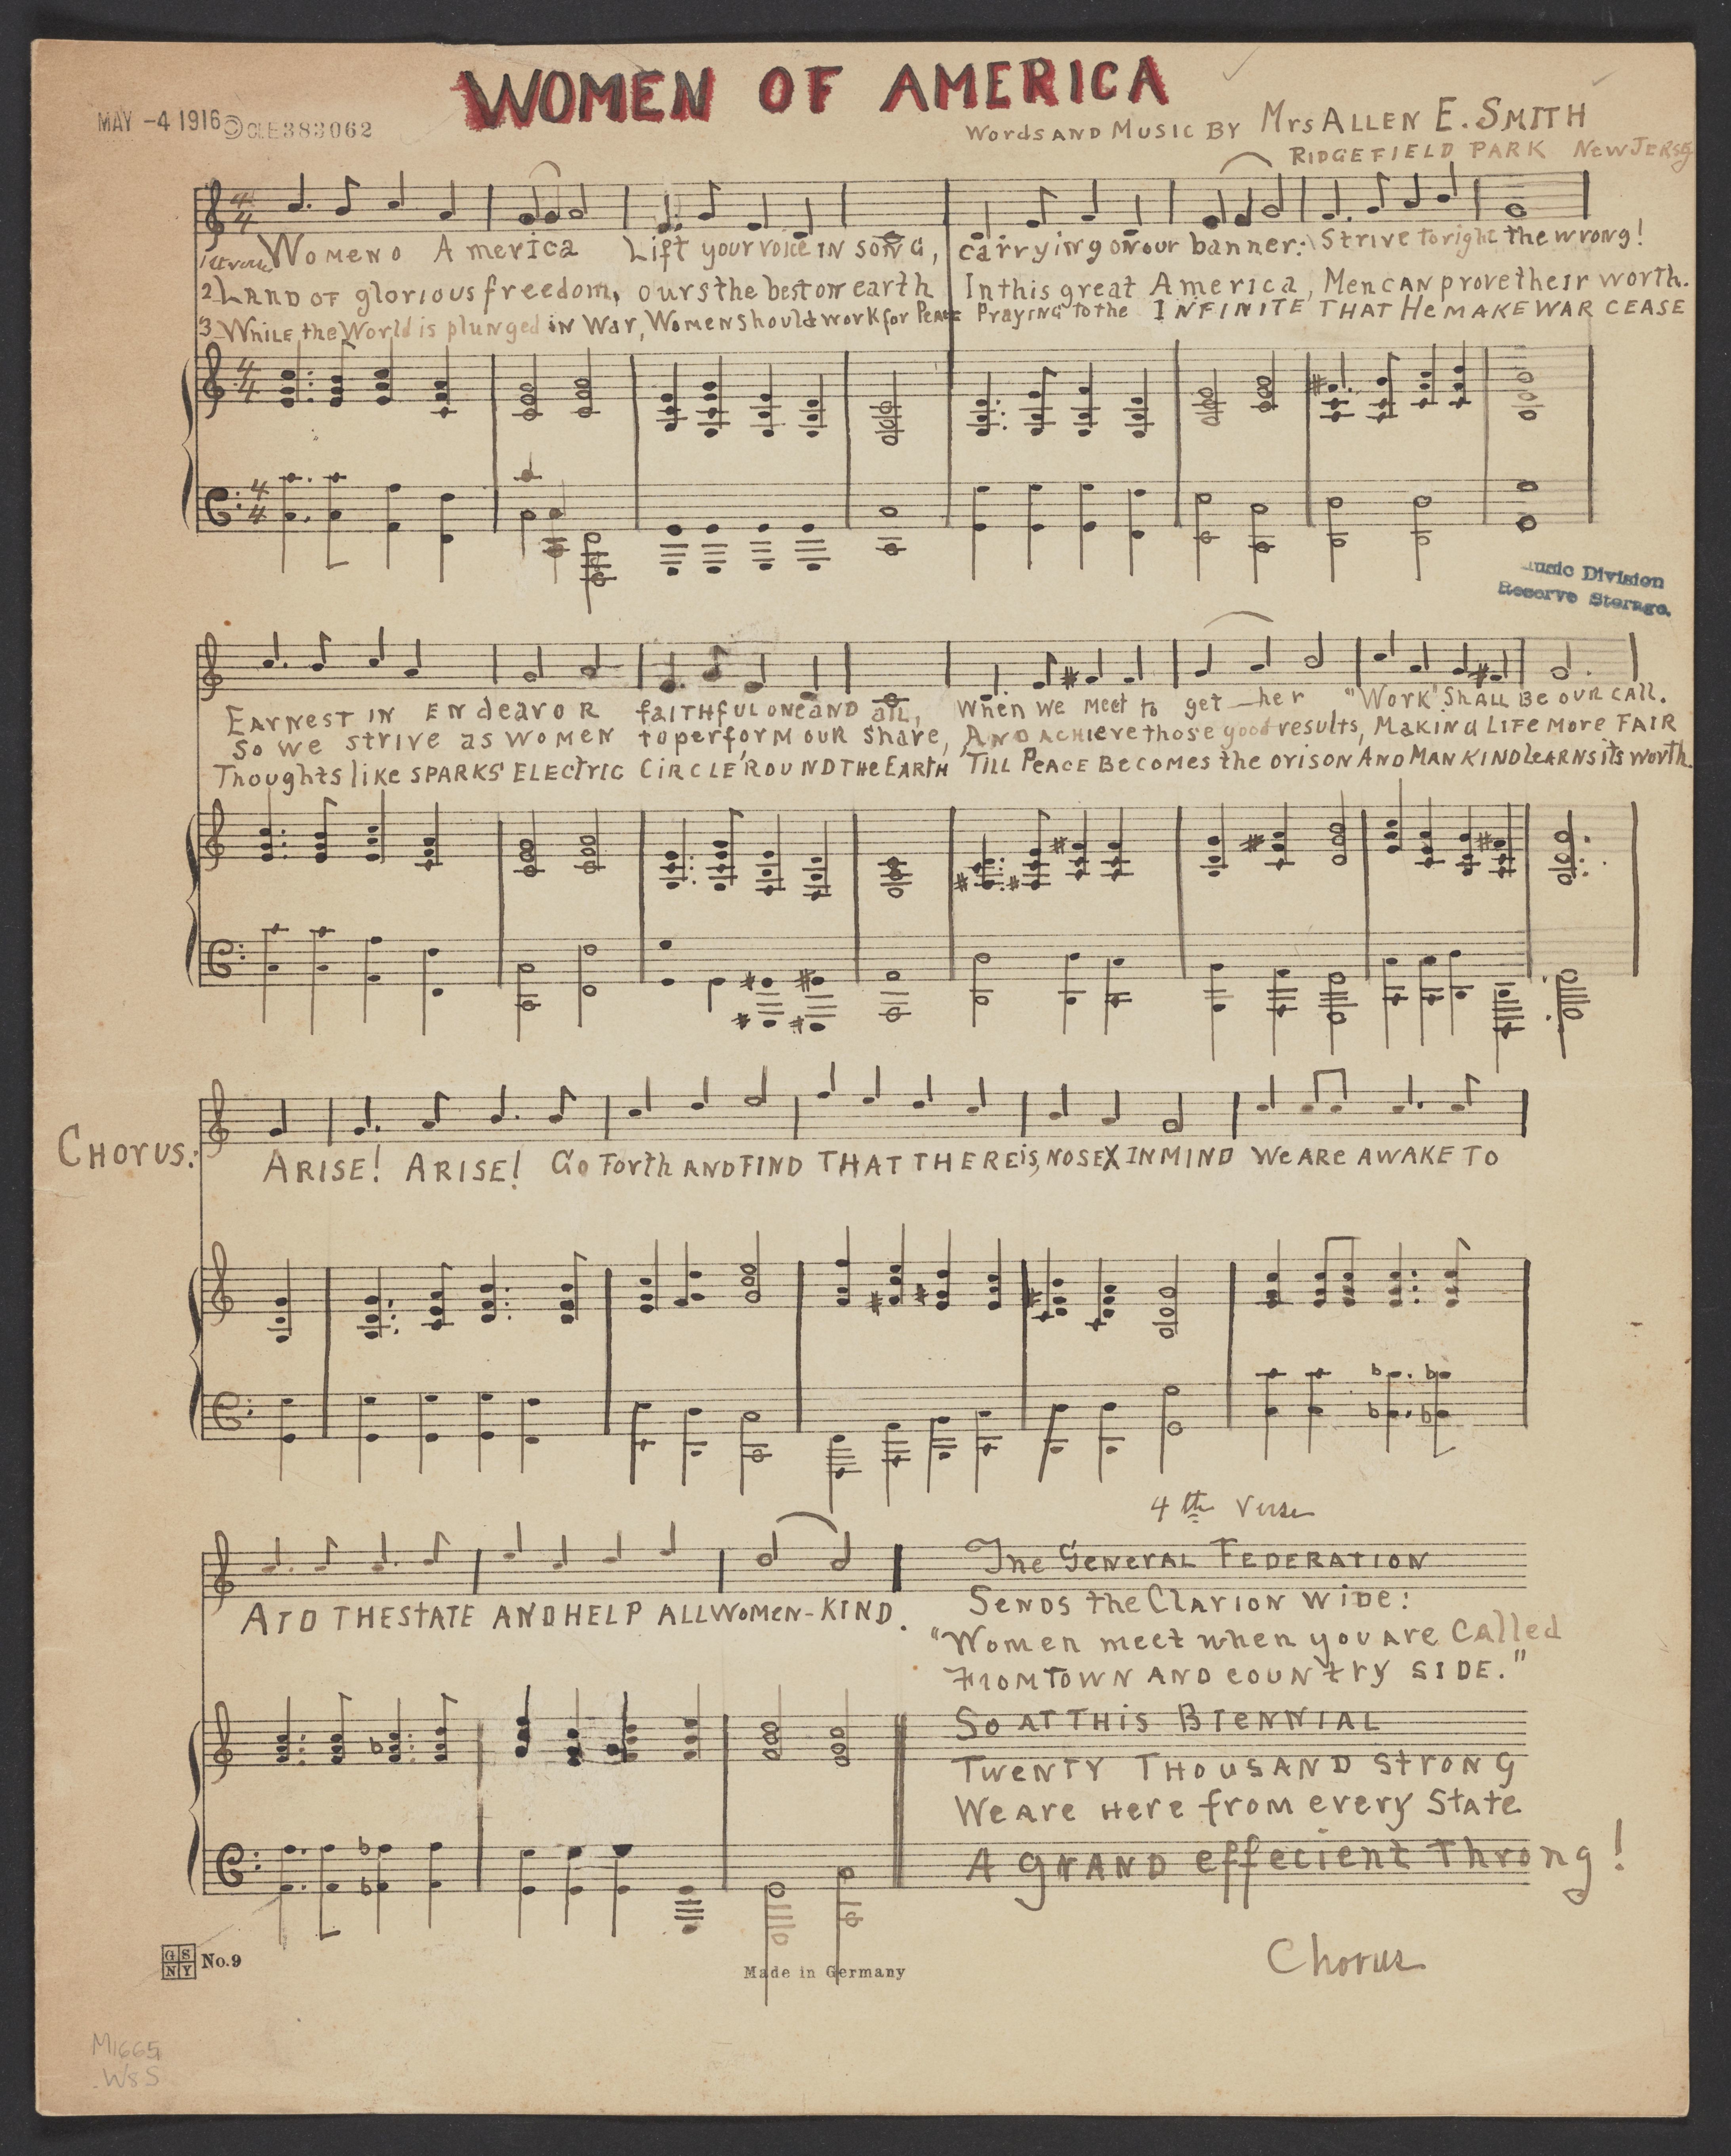 WOMEN OF AMERICA
MAY -4 1916 © CLE383062
Words AND MUSIC BY Mrs ALLEN E. SMITH
RIDGEFIELD PARK NEW JERSEY
1st verse WOMEN O America Lift your voice IN SONG, carrying on our banner: Strive to right the wrong!
2 LAND OF glorious freedom, ours the best on earth In this great America, Men CAN prove their worth.
3 WHILE the World is plunged in War, Women should work for Peace Praying to the INFINITE THAT He MAKE WAR CEASE
Music Division
Reserve Storage.
EARNEST IN ENdeavor FAITHFUL ONE AND all, When we meet to get-her "Work" SHALL BE OUR CALL.
So we strive as women to perform our share, AND ACHieve those good results, MAKING LIFE More FAIR
Thoughts like SPARKS ELECTRIC CIRCLE 'ROUND THE EARTH TILL PEACE BECOMES the orison AND MANKIND LEARNS its worth.
CHORUS: ARISE! ARISE! Go Forth AND FIND THAT THERE is, NO SEX IN MIND WE ARE AWAKE TO
AID THE STATE AND HELP ALL WOMEN-KIND.
4th Verse
The General FEDERATION
SENDS the Clarion wide:
"Women meet when you are Called
From TOWN AND COUNtry SIDE."
So AT THIS BIENNIAL
TWENTY THOUSAND STRONG
We are Here from every State
A GRAND effecient Throng!
Chorus
GS NY No. 9
Made in Germany
M1665
.W5S